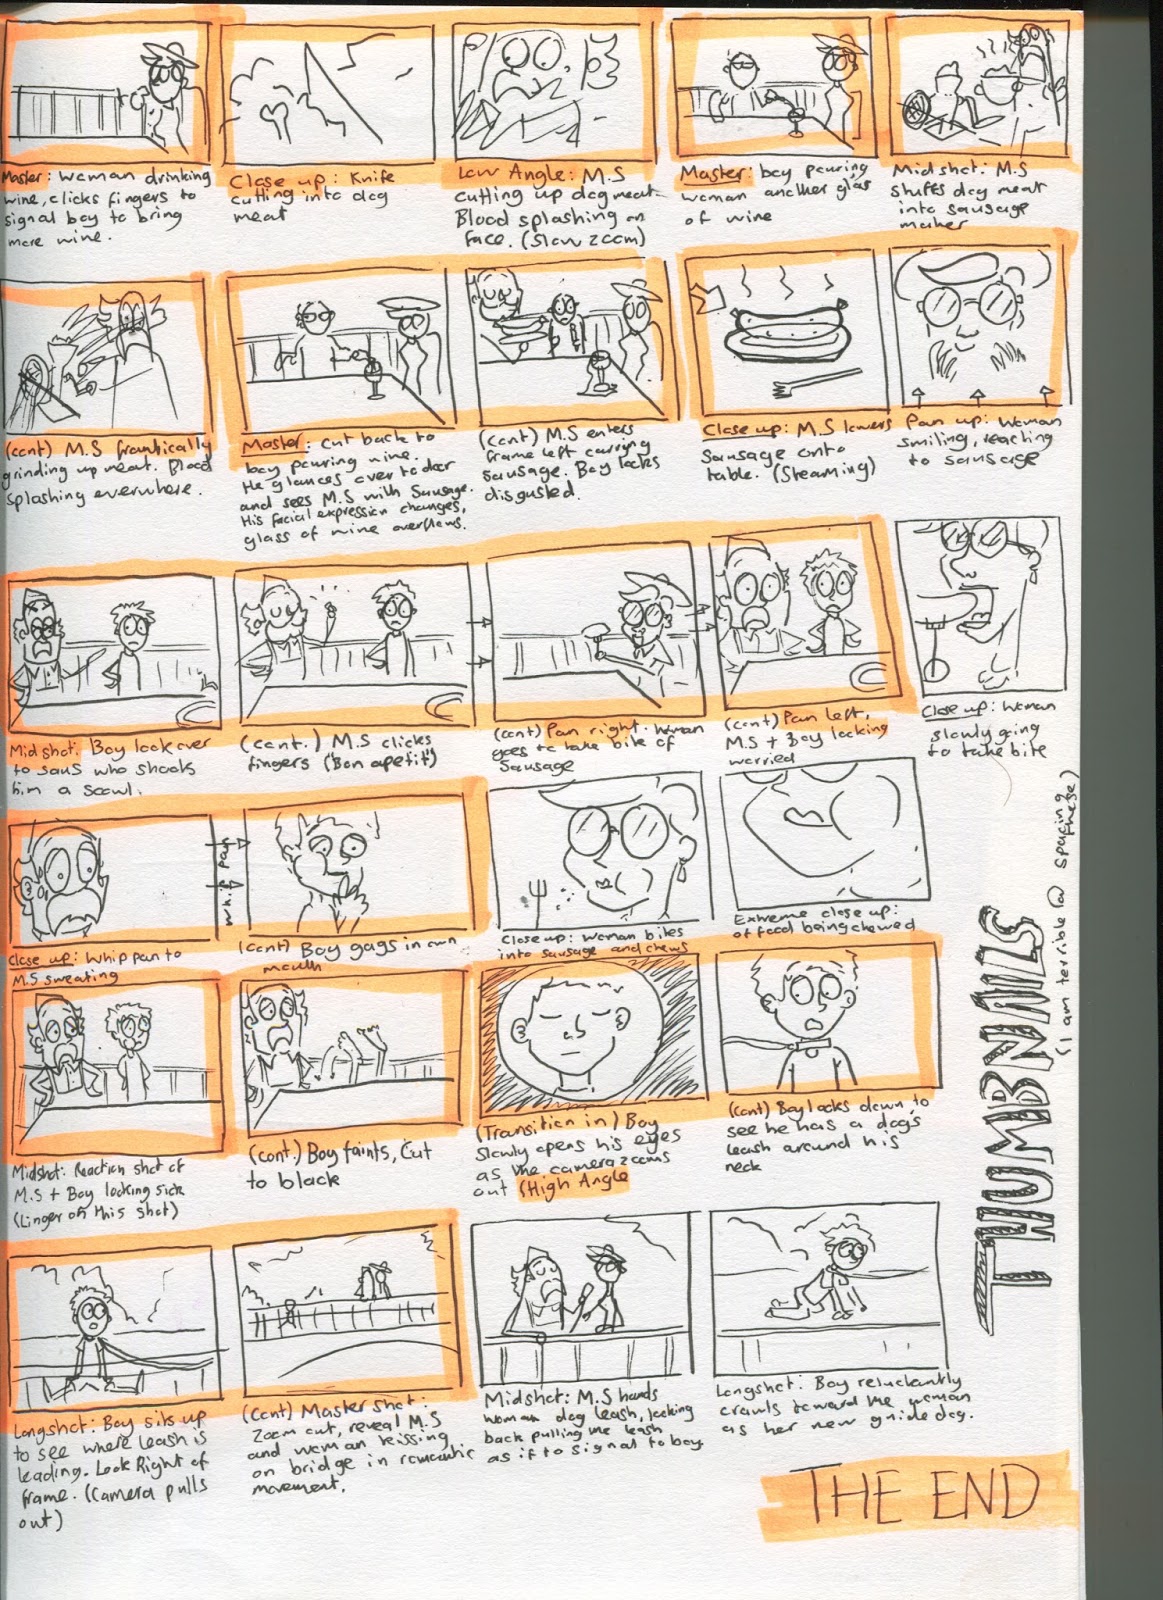 Master: Woman drinking
wine, clicks fingers to
signal boy to bring
more wine.
Close up: Knife
cutting into dog
meat
Low Angle: M.S
cutting up dog meat
Blood splashing on
face. (Slow zoom)
Master: boy pouring
woman another glas
of wine
Midshot: M.S
stuffs dog meat
into sausage
maker
(cont) M.S frantically
grinding up meat. Blood
splashing everywhere.
Master: cut back to
boy pouring wine.
He glances over to door
and sees M.S with Sausage.
His facial expression changes,
glass of wine overflows.
(cont) M.S enters
frame left carrying
sausage. Boy looks
disgusted.
Close up: M.S lowers
Sausage onto
table. (Steaming)
Pan up: Woman
smiling, reacting
to sausage
Midshot: Boy look over
to saus who shoots
him a scowl.
(cont.) M.S clicks
fingers ("Bon apetit")
(cont) Pan right. Woman
goes to take bite of
Sausage
(cont) Pan left,
M.S + Boy looking
worried
Close up: Woman
slowly going
to take bite
Close up: Whip pan to
M.S sweating
whip pan
(cont) Boy gags in own
mouth
Close up: Woman bites
into sausage and chews
Extreme close up:
of food being chewed
Midshot: Reaction shot of
M.S + Boy looking sick
(Linger on this shot)
(cont.) Boy faints, Cut
to black
(Transition in) Boy
slowly opens his eyes
as the camera zooms
out (High Angle
(cont) Boy looks down to
see he has a dog's
leash around his
neck
Longshot: Boy sits up
to see where leash is
leading. Look Right of
frame. (Camera pulls
out)
(cont) Master shot:
Zoom out, reveal M.S
and woman kissing
on bridge in romantic
movement.
Midshot: M.S hands
woman dog leash, looking
back pulling the leash
as if to signal to boy.
Longshot: Boy reluctantly
crawls toward the woman
as her new guide dog.
THUMBNAILS
(I am terrible @ spacing
these)
THE END